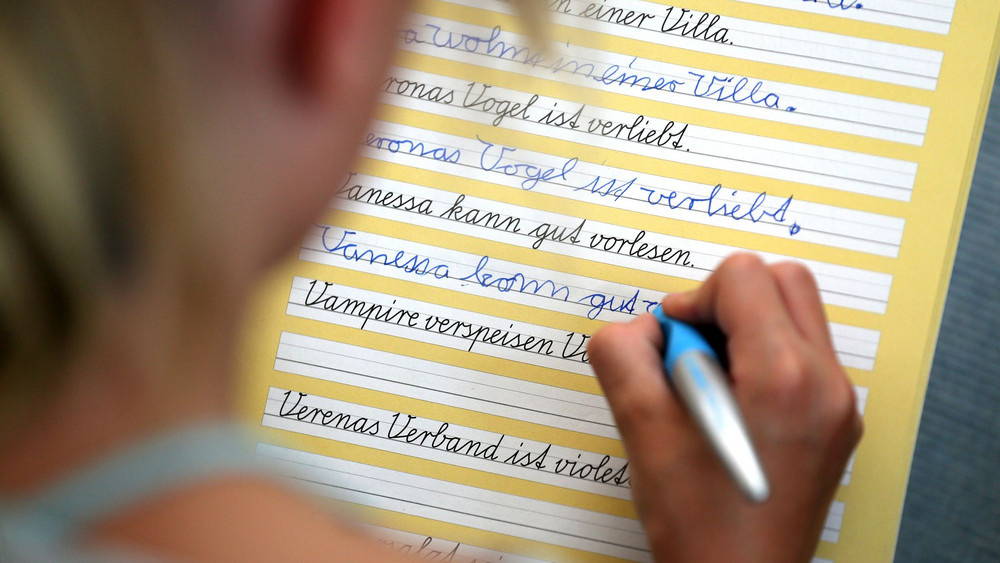 n einer Villa.
a wohnt in einer Villa.
ronas Vogel ist verliebt.
eronas Vogel ist verliebt.
Vanessa kann gut vorlesen.
Vanessa kann gut v
Vampire verspeisen V
Verenas Verband ist violet